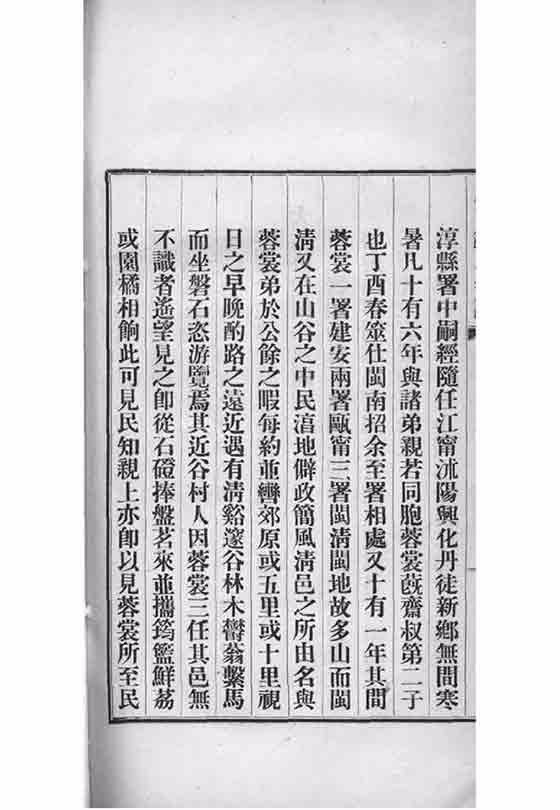 淳縣署中嗣經隨任江甯沭陽興化丹徒新鄉無間寒
暑凡十有六年與諸弟親若同胞蓉裳莪齋叔第二子
也丁酉春筮仕閩南招余至署相處又十有一年其間
蓉裳一署建安兩署甌甯三署閩清閩地故多山而閩
清又在山谷之中民湻地僻政簡風清邑之所由名與
蓉裳弟於公餘之暇每約並轡郊原或五里或十里視
日之早晚酌路之遠近遇有清谿邃谷林木鬱蓊繫馬
而坐磐石恣游覽焉其近谷村人因蓉裳三任其邑無
不識者遙望見之卽從石磴捧盤茗來並攜筠籃鮮荔
或園橘相餉此可見民知親上亦卽以見蓉裳所至民